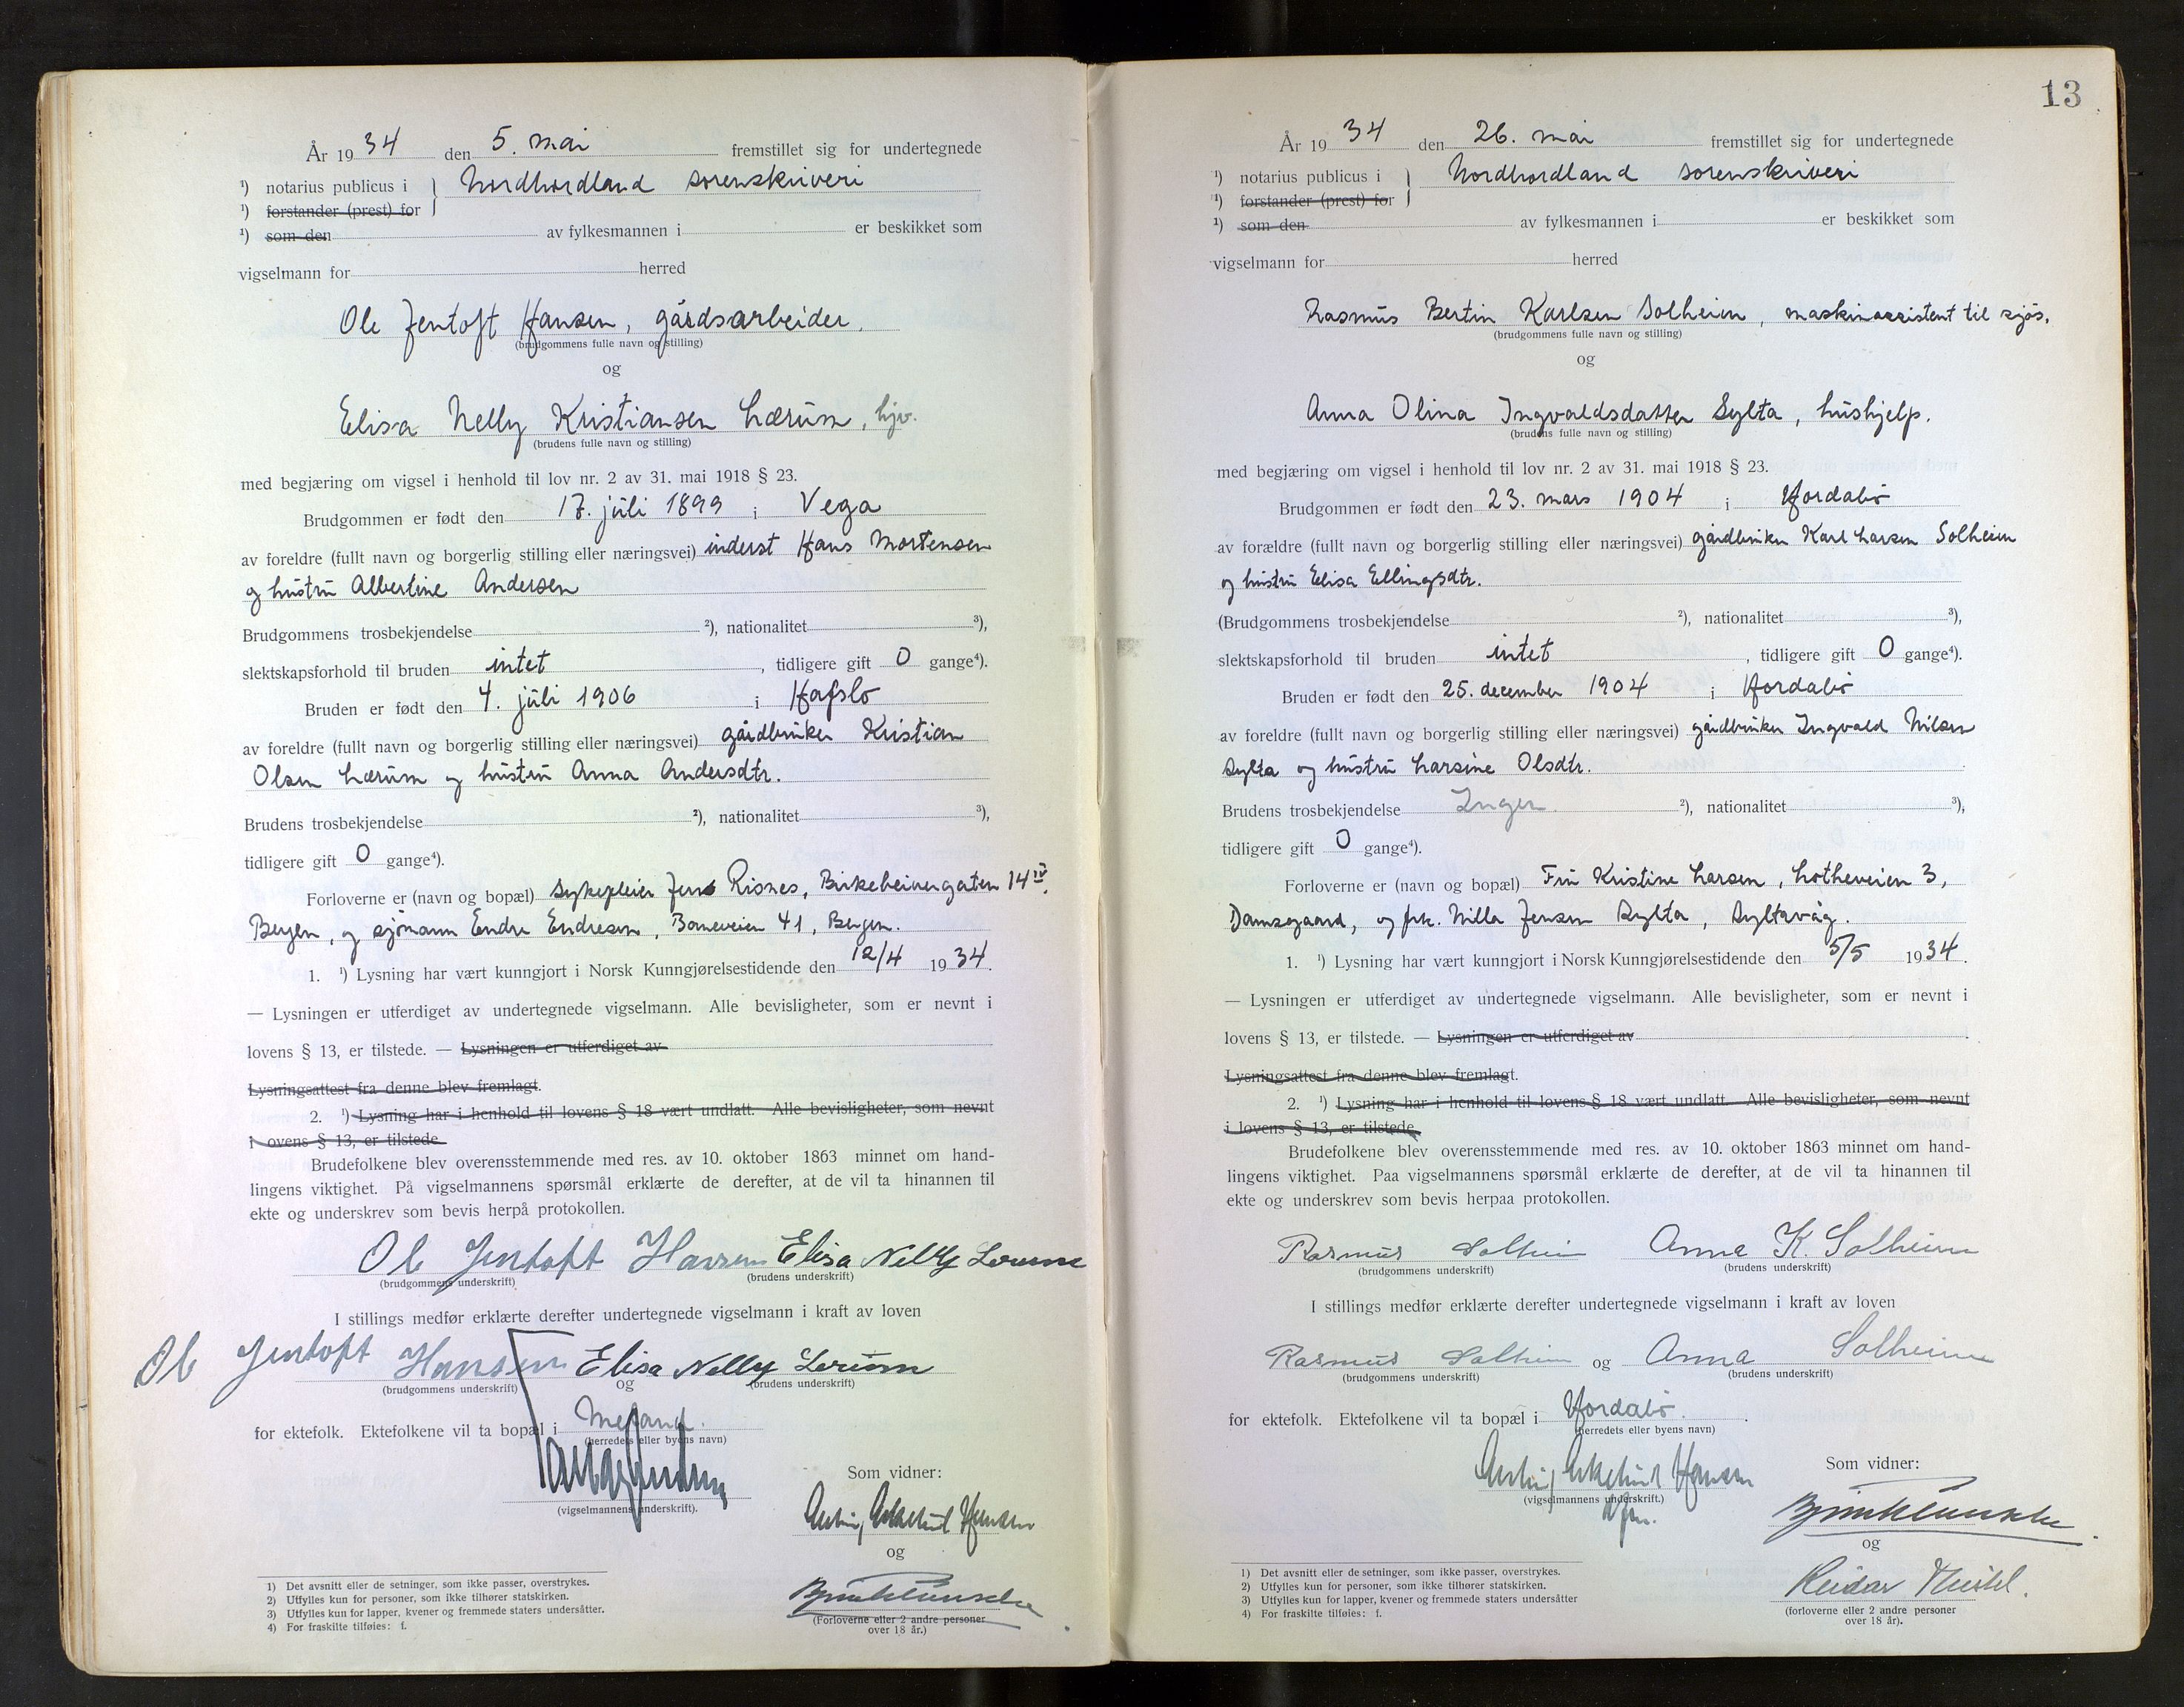 År 1934 den 5. mai fremstillet sig for undertegnede
¹) notarius publicus i } Nordhordland sorenskriveri
¹) forstander (prest) for
¹) som den av fylkesmannen i er beskikket som
vigselmann for herred
Ole Jentoft Hansen, gårdsarbeider.
(brudgommens fulle navn og stilling)
og
Elisa Nelly Kristiansen Lærum, hjv.
(brudens fulle navn og stilling)
med begjæring om vigsel i henhold til lov nr. 2 av 31. mai 1918 § 23.
Brudgommen er født den 17. juli 1899 i Vega
av foreldre (fullt navn og borgerlig stilling eller næringsvei) inderst Hans Mortensen
og hustru Albertine Andersen
Brudgommens trosbekjendelse ²), nationalitet ³),
slektskapsforhold til bruden intet, tidligere gift 0 gange⁴).
Bruden er født den 4. juli 1906 i Hafslo
av foreldre (fullt navn og borgerlig stilling eller næringsvei) gårdbruker Kristian
Olsen Lærum og hustru Anna Andersdtr.
Brudens trosbekjendelse ²), nationalitet ³),
tidligere gift 0 gange⁴).
Forloverne er (navn og bopæl) sykepleier Jens Risnes, Birkebeinergaten 14 IV,
Bergen, og sjømann Endre Endresen, Boneveien 41, Bergen.
1. ¹) Lysning har vært kunngjort i Norsk Kunngjørelsestidende den 12/4 1934.
— Lysningen er utferdiget av undertegnede vigselmann. Alle bevisligheter, som er nevnt i
lovens § 13, er tilstede. — Lysningen er utferdiget av
Lysningsattest fra denne blev fremlagt.
2. ¹) Lysning har i henhold til lovens § 18 vært undlatt. Alle bevisligheter, som nevnt
i ovens § 13, er tilstede.
Brudefolkene blev overensstemmende med res. av 10. oktober 1863 minnet om hand-
lingens viktighet. På vigselmannens spørsmål erklærte de derefter, at de vil ta hinannen til
ekte og underskrev som bevis herpå protokollen.
Ole Jentoft Hansen Elisa Nelly Lerum
(brudgommens underskrift) (brudens underskrift)
I stillings medfør erklærte derefter undertegnede vigselmann i kraft av loven
Ole Jentoft Hansen og Elisa Nelly Lerum
(brudgommens underskrift) (brudens underskrift)
for ektefolk. Ektefolkene vil ta bopæl i
(herredets eller byens navn)
(vigselmannens underskrift).
Som vidner:
Hansen
og
(Forloverne eller 2 andre personer
over 18 år.)
1) Det avsnitt eller de setninger, som ikke passer, overstrykes.
2) Utfylles kun for personer, som ikke tilhører statskirken.
3) Utfylles kun for lapper, kvener og fremmede staters undersåtter.
4) For fraskilte tilføies: f.
13
År 1934 den 26. mai fremstillet sig for undertegnede
¹) notarius publicus i } Nordhordland sorenskriveri
¹) forstander (prest) for
¹) som den av fylkesmannen i er beskikket som
vigselmann for herred
Rasmus Bertin Karlsen Solheim, maskinassistent til sjøs.
(brudgommens fulle navn og stilling)
og
Anna Olina Ingvaldsdatter Sylta, hushjelp.
(brudens fulle navn og stilling)
med begjæring om vigsel i henhold til lov nr. 2 av 31. mai 1918 § 23.
Brudgommen er født den 23. mars 1904 i Hordabø
av forældre (fullt navn og borgerlig stilling eller næringsvei) gårdbruker Karl Larsen Solheim
og hustru Elisa Ellingsdtr.
(Brudgommens trosbekjendelse ²), nationalitet ³),
slektskapsforhold til bruden intet, tidligere gift 0 gange⁴).
Bruden er født den 25. december 1904 i Hordabø
av foreldre (fullt navn og borgerlig stilling eller næringsvei) gårdbruker Ingvald Nilsen
Sylta og hustru Larsine Olsdtr.
Brudens trosbekjendelse Ingen ²), nationalitet ³),
tidligere gift 0 gange⁴).
Forloverne er (navn og bopæl) Fru Kristine Larsen, Lotheveien 3,
Damsgaard, og frk. Milla Jensen Sylta, Syltavåg.
1. ¹) Lysning har vært kunngjort i Norsk Kunngjørelsestidende den 5/5 1934.
— Lysningen er utferdiget av undertegnede vigselmann. Alle bevisligheter, som er nevnt i
lovens § 13, er tilstede. — Lysningen er utferdiget av
Lysningsattest fra denne blev fremlagt.
2. ¹) Lysning har i henhold til lovens § 18 vært undlatt. Alle bevisligheter, som nevnt
i lovens § 13, er tilstede.
Brudefolkene blev overensstemmende med res. av 10. oktober 1863 minnet om hand-
lingens viktighet. Paa vigselmannens spørsmål erklærte de derefter, at de vil ta hinannen til
ekte og underskrev som bevis herpaa protokollen.
Rasmus Solheim Anna K. Solheim
(brudgommens underskrift) (brudens underskrift)
I stillings medfør erklærte derefter undertegnede vigselmann i kraft av loven
Rasmus Solheim og Anna Solheim
(brudgommens underskrift) (brudens underskrift)
for ektefolk. Ektefolkene vil ta bopæl i Hordabø.
(herredets eller byens navn)
Hansen
(vigselmannens underskrift.)
Som vidner:
og
Reidar
(forloverne eller 2 andre personer
over 18 år).
1) Det avsnitt eller de setninger, som ikke passer, overstrykes.
2) Utfylles kun for personer, som ikke tilhører statskirken.
3) Utfylles kun for lapper, kvener og fremmede staters undersåtter
4) For fraskilte tilføies: f.